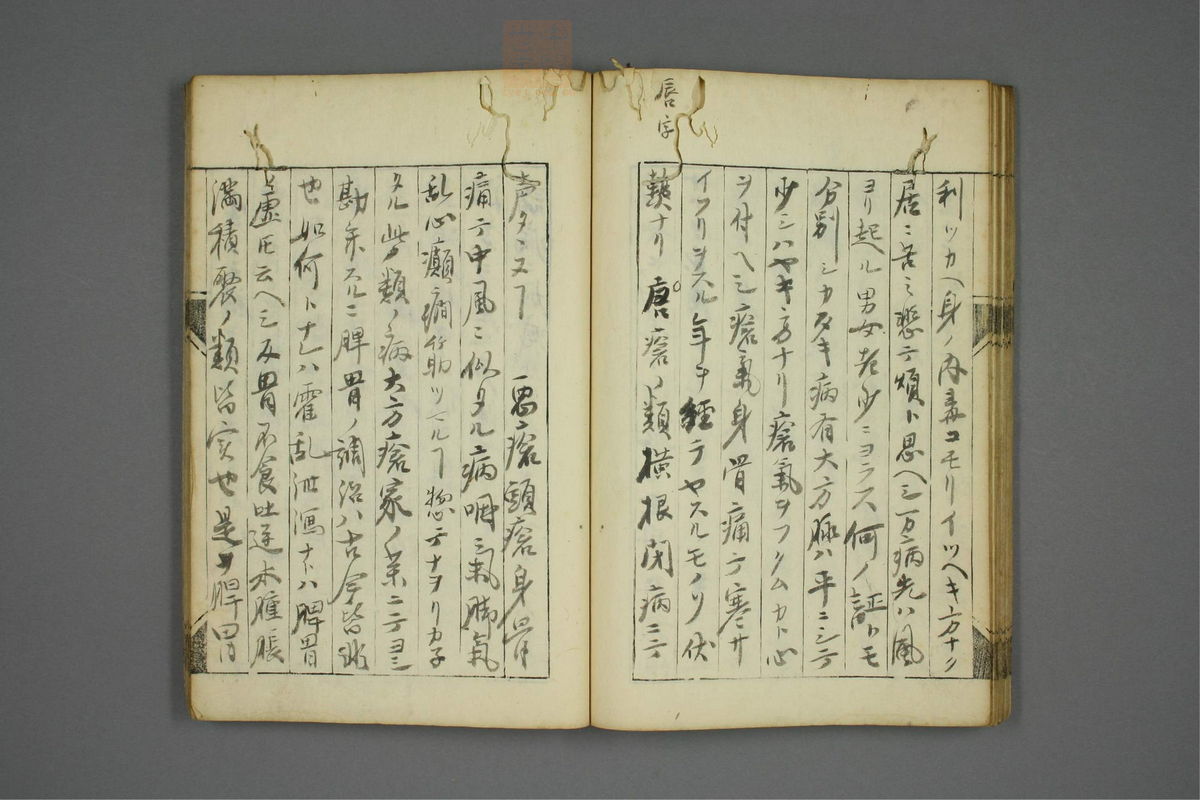 唇字
利ツカヘ身ノ内毒コモリイツヘキ方ナク
居ニ苦ミ悲テ煩ト思ヘシ万病先ハ風
ヨリ起ル男女老少ニヨラス何ノ証トモ
分別シカタキ病有大方脉ハ平ニシテ
少シハヤキ方ナリ瘡氣ヲフクムカト心
ヲ付ヘシ瘡氣身骨痛テ塞サ
イツリヲスル年ヲ經テヤスルモノリ伏
ナリ 唐瘡ノ類横根閉病ニテ
声タヽヌ丁 瘡頭瘡身骨
痛テ中風ニ似タル病咽氣脚氣
乱心癲癇ツルヽ丁惣テナヲリカ子
タル此類ノ病大方瘡家ノ業ニテヨシ
勘弁スルニ脾胃ノ調治ハ古今皆
也如何トナレハ霍乱泄瀉ナトハ脾胃
ノ虚ト云ヘシ反胃不食吐逆水腫脹
満積聚ノ類皆実也是ヲ脾胃